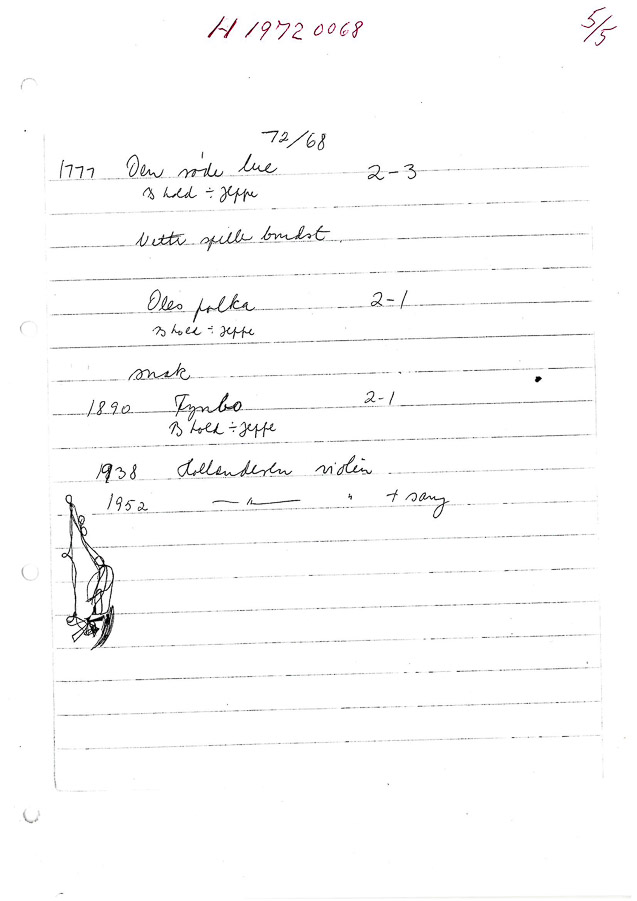 H 1972 0068
5/5
72/68
1777 Den røde lue 2-3
B hold ÷ Jeppe
spille
Oles polka 2-1
B hold ÷ Jeppe
snak
1890 Fynbo 2-1
B hold ÷ Jeppe
1938 Hollænderen violin
1952 —〃— " + sang